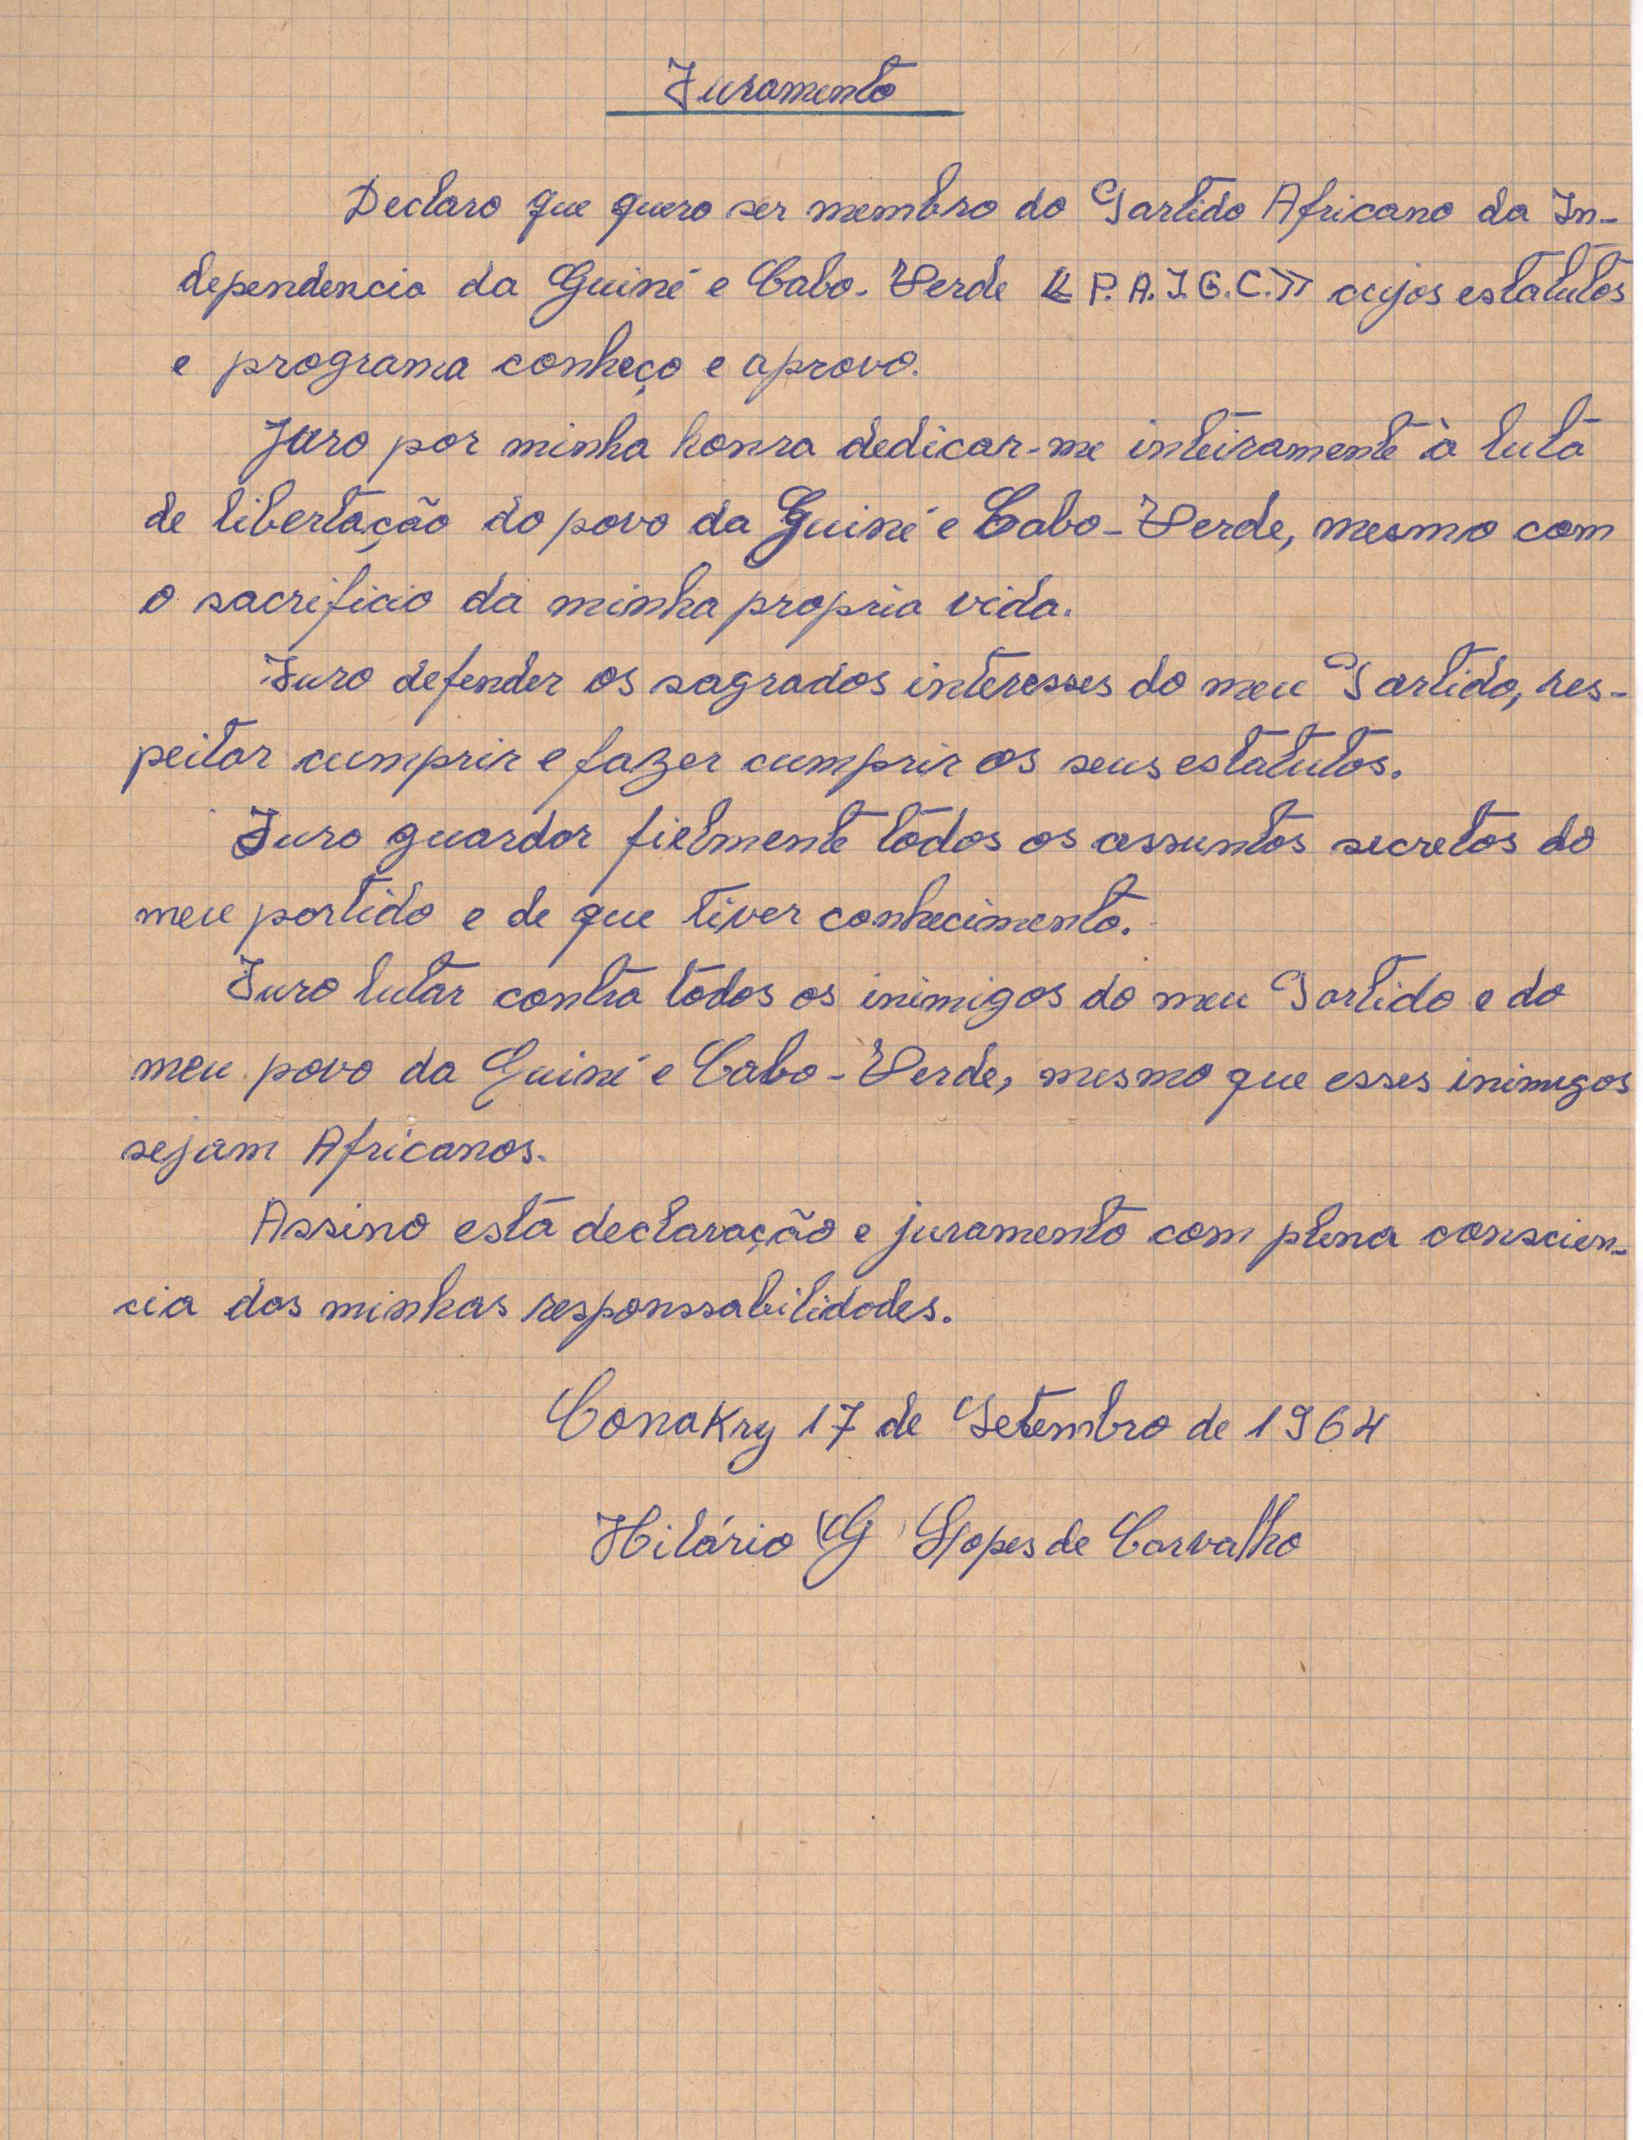 Juramento
Declaro que quero ser membro do Partido Africano da In-
dependencia da Guiné e Cabo-Verde « P.A.I.G.C.» cujos estatutos
e programa conheço e aprovo.
Juro por minha honra dedicar-me inteiramente à luta
de libertação do povo da Guiné e Cabo-Verde, mesmo com
o sacrificio da minha propria vida.
Juro defender os sagrados interesses do meu Partido, res-
peitar cumprir e fazer cumprir os seus estatutos.
Juro guardar fielmente todos os assuntos secretos do
meu partido e de que tiver conhecimento.
Juro lutar contra todos os inimigos do meu Partido e do
meu povo da Guiné e Cabo-Verde, mesmo que esses inimigos
sejam Africanos.
Assino esta declaração e juramento com plena conscien-
cia das minhas responssabilidades.
Conakry 17 de Setembro de 1964
Hilário G Lopes de Carvalho